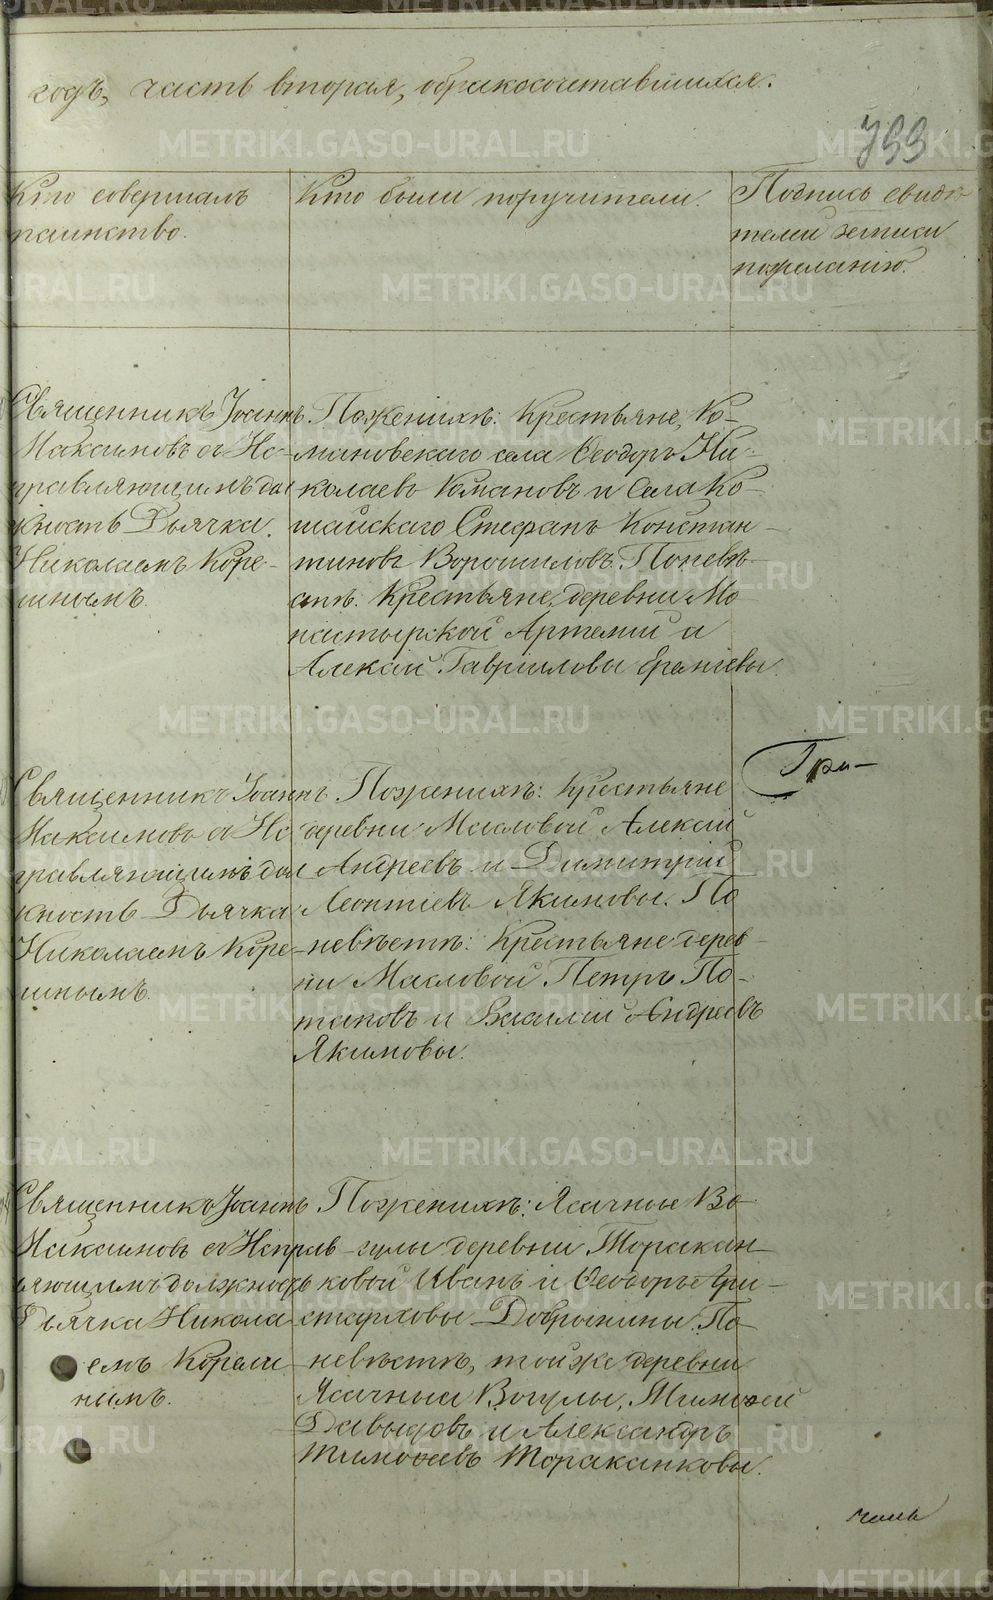 годъ, часть вторая, обракосочетавшихся.
799
Кто совершалъ
таинство.
Кто были поручители.
Подпись свидѣ
телей записи
пожеланію.
Священникъ Іоаннъ
Максимовъ съ Ис-
правляющимъ дол
жность Дьячка
Николаемъ Коре-
шнымъ.
Поженихѣ: Крестьяне, Ко-
мановскаго села Ѳеодоръ Ни-
колаевъ Комановъ и Села Ко-
шайскаго Стефанъ Констан-
тиновъ Ворошиловъ. Поневѣ-
стѣ. Крестьяне, деревни Мо
настырской Артемий и
Алексѣй Гавриловы
Священникъ Іоаннъ
Максимовъ съ Ис
правляющимъ дол
жность Дьячка
Николаемъ Коре-
шнымъ.
Поженихѣ: Крестьяне
деревни Масловой Алексѣй
Андреевъ и Димитрій
Леонтіевъ Якимовы. По
невѣстѣ: Крестьяне дерев-
ни Масловой Петръ По-
таповъ и Василій Андреевъ
Якимовы.
Гри-
Священникъ Іоаннъ
Максимовъ съ Исправ-
ляющимъ должность
Дьячка Никола-
емъ Корели
нымъ.
Поженихѣ: Ясачные Во-
гулы деревни Торакан-
ковой Иванъ и Ѳеодоръ Ари-
старховы Добрынины. По
невѣстѣ, тойже деревни
Ясачныи Вогулы, Тимоѳей
Давыдовъ и Александръ
Тимоѳеевъ Тораканковы.
METRIKI.GASO-URAL.RU